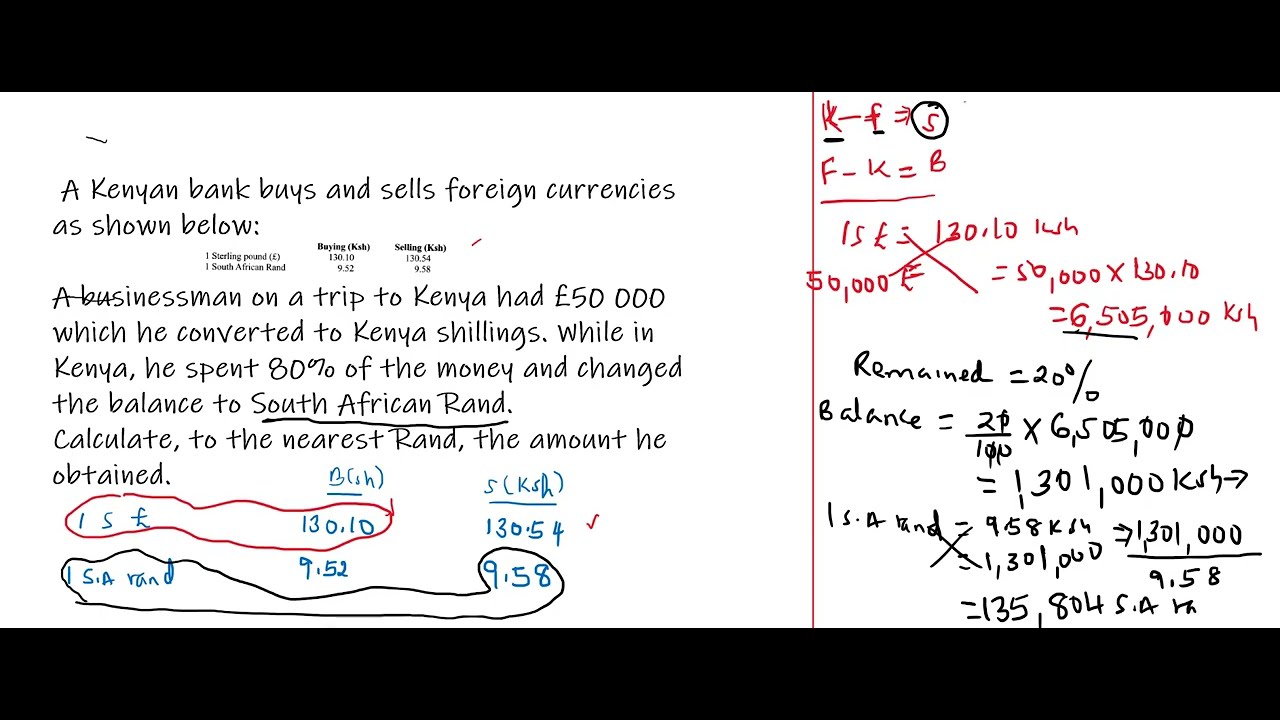 A Kenyan bank buys and sells foreign currencies
as shown below:
Buying (Ksh) Selling (Ksh)
1 Sterling pound (£) 130.10 130.54
1 South African Rand 9.52 9.58
A businessman on a trip to Kenya had £50 000
which he converted to Kenya shillings. While in
Kenya, he spent 80% of the money and changed
the balance to South African Rand.
Calculate, to the nearest Rand, the amount he
obtained.
B(sh) S(Ksh)
1 S £ 130.10 130.54
1 S.A rand 9.52 9.58
K-f ⇒ S
F-K = B
1S £ = 130.10 Ksh
50,000 £ = 50,000 × 130.10
= 6,505,000 Ksh
Remained = 20%
Balance = 20/100 × 6,505,000
= 1,301,000 Ksh →
1 S.A rand = 9.58 Ksh ⇒ 1,301,000
= 1,301,000 9.58
= 135,804 S.A ra